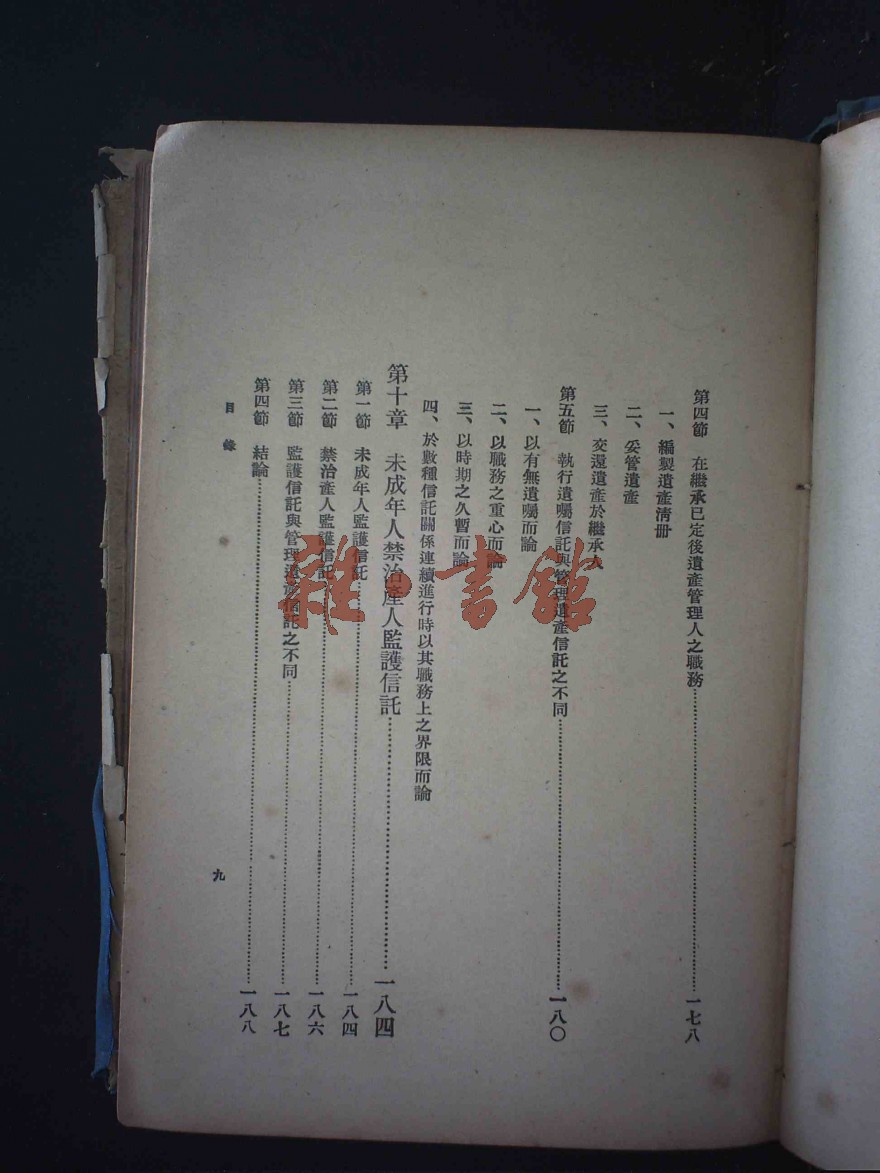 第四節　在繼承已定後遺產管理人之職務……一七八
一、編製遺產清册
二、妥管遺產
三、交還遺產於繼承人
第五節　執行遺囑信託與管理遺產信託之不同……一八〇
一、以有無遺囑而論
二、以職務之重心而論
三、以時期之久暫而論
四、於數種信託關係連續進行時以其職務上之界限而論
第十章　未成年人禁治產人監護信託……一八四
第一節　未成年人監護信託……一八四
第二節　禁治產人監護信託……一八六
第三節　監護信託與管理遺產信託之不同……一八七
第四節　結論……一八八
目錄
九
雜·書館